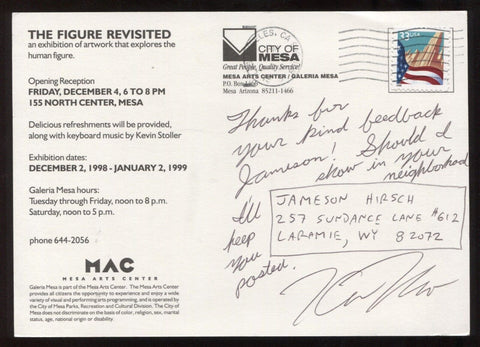 THE FIGURE REVISITED
an exhibition of artwork that explores the
human figure.
Opening Reception
FRIDAY, DECEMBER 4, 6 TO 8 PM
155 NORTH CENTER, MESA
Delicious refreshments will be provided,
along with keyboard music by Kevin Stoller
Exhibition dates:
DECEMBER 2, 1998 - JANUARY 2, 1999
Galeria Mesa hours:
Tuesday through Friday, noon to 8 p.m.
Saturday, noon to 5 p.m.
phone 644-2056
MAC
MESA ARTS CENTER
Galeria Mesa is part of the Mesa Arts Center. The Mesa Arts Center
provides all citizens the opportunity to experience and enjoy a wide
variety of visual and performing arts programming, and is operated by
the City of Mesa Parks, Recreation and Cultural Division. The City of
Mesa does not discriminate on the basis of color, religion, sex, marital
status, age, national origin or disability.
CITY OF
MESA
Great People, Quality Service!
MESA ARTS CENTER / GALERIA MESA
P.O. Box 1466
Mesa Arizona 85211-1466
LES, CA
33 USA
Thanks for
your kind feedback
Jameson! Should I
show in your
neighborhood
I'll
keep
you
posted.
JAMESON HIRSCH
257 SUNDANCE LANE #612
LARAMIE, WY 82072